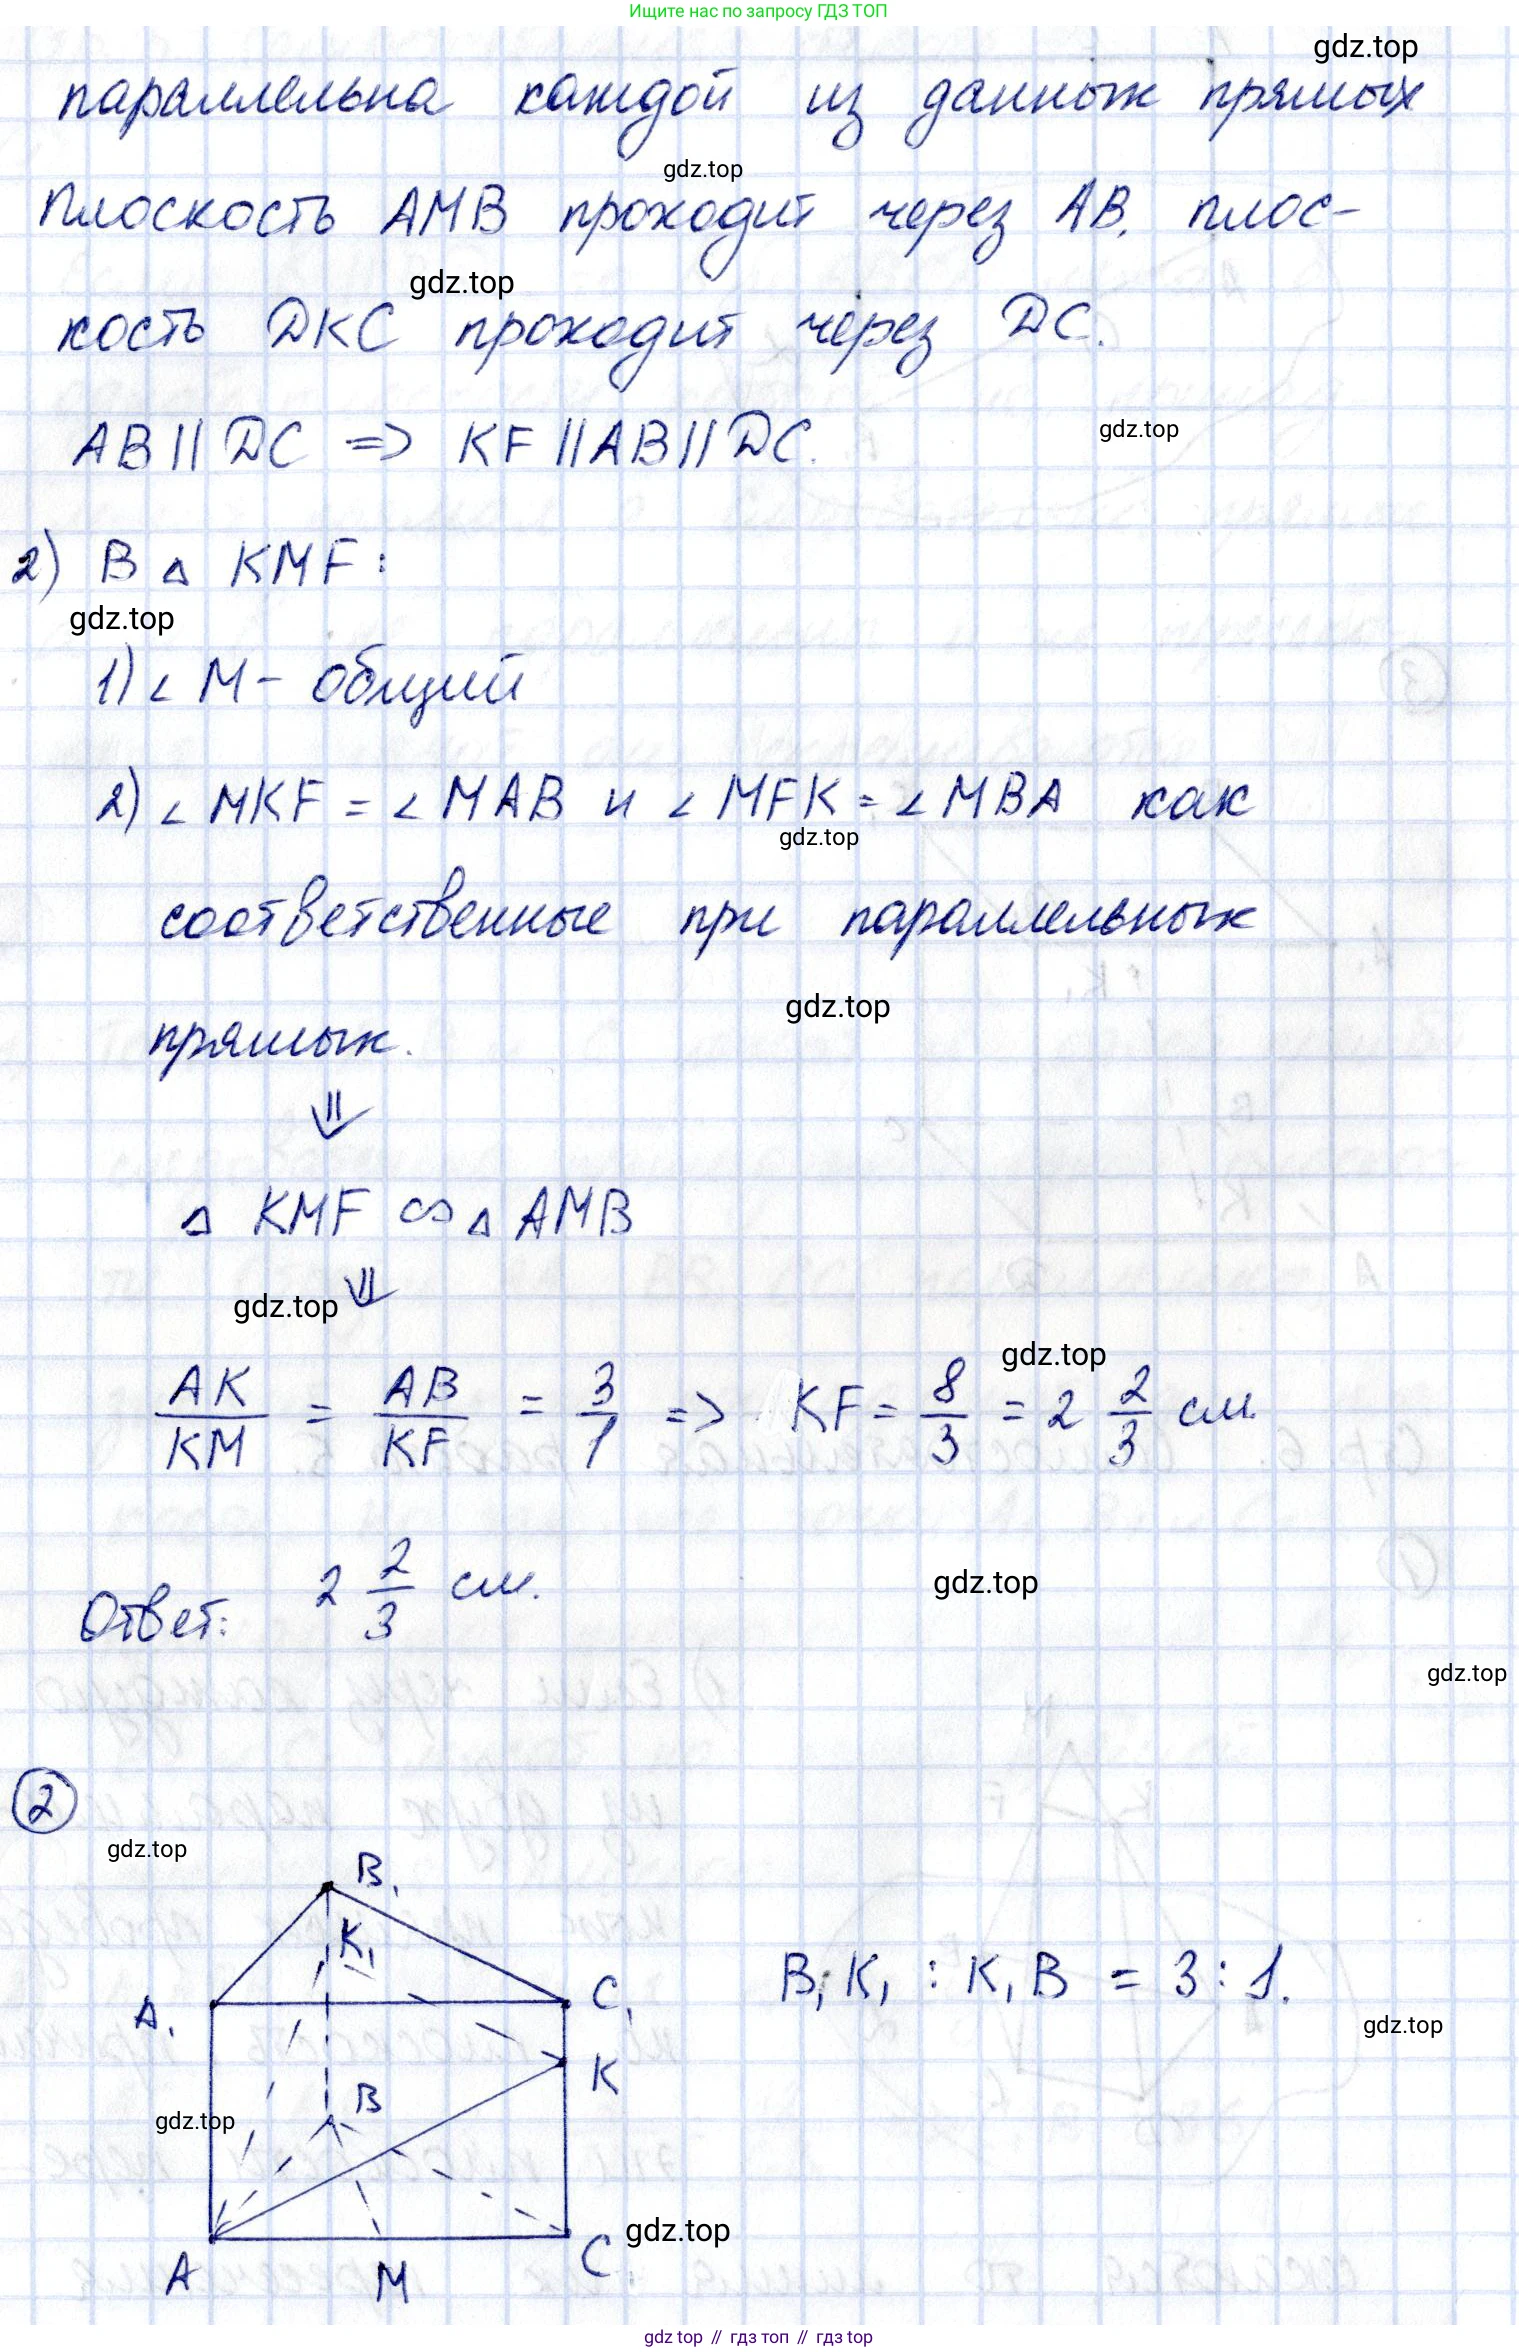 Ищите нас по запросу ГДЗ ТОП
gdz.top
параллельна каждой из данных прямых
gdz.top
Плоскость AMB проходит через AB, плос-
gdz.top
кость DKC проходит через DC.
AB || DC => KF || AB || DC.
gdz.top
2) В △ KMF:
gdz.top
1) ∠ M - общий
2) ∠ MKF = ∠ MAB и ∠ MFK = ∠ MBA как
gdz.top
соответственные при параллельных
gdz.top
прямых.
⇓
△ KMF ∾ △ AMB
⇓
gdz.top
gdz.top
AK/KM = AB/KF = 3/1 => KF = 8/3 = 2 2/3 см.
Ответ: 2 2/3 см.
gdz.top
gdz.top
2
gdz.top
B₁
K₁
A₁ C₁
B₁K₁ : K₁B = 3 : 1.
gdz.top
K
B
gdz.top
gdz.top
A M C
gdz top // гдз топ // гдз top